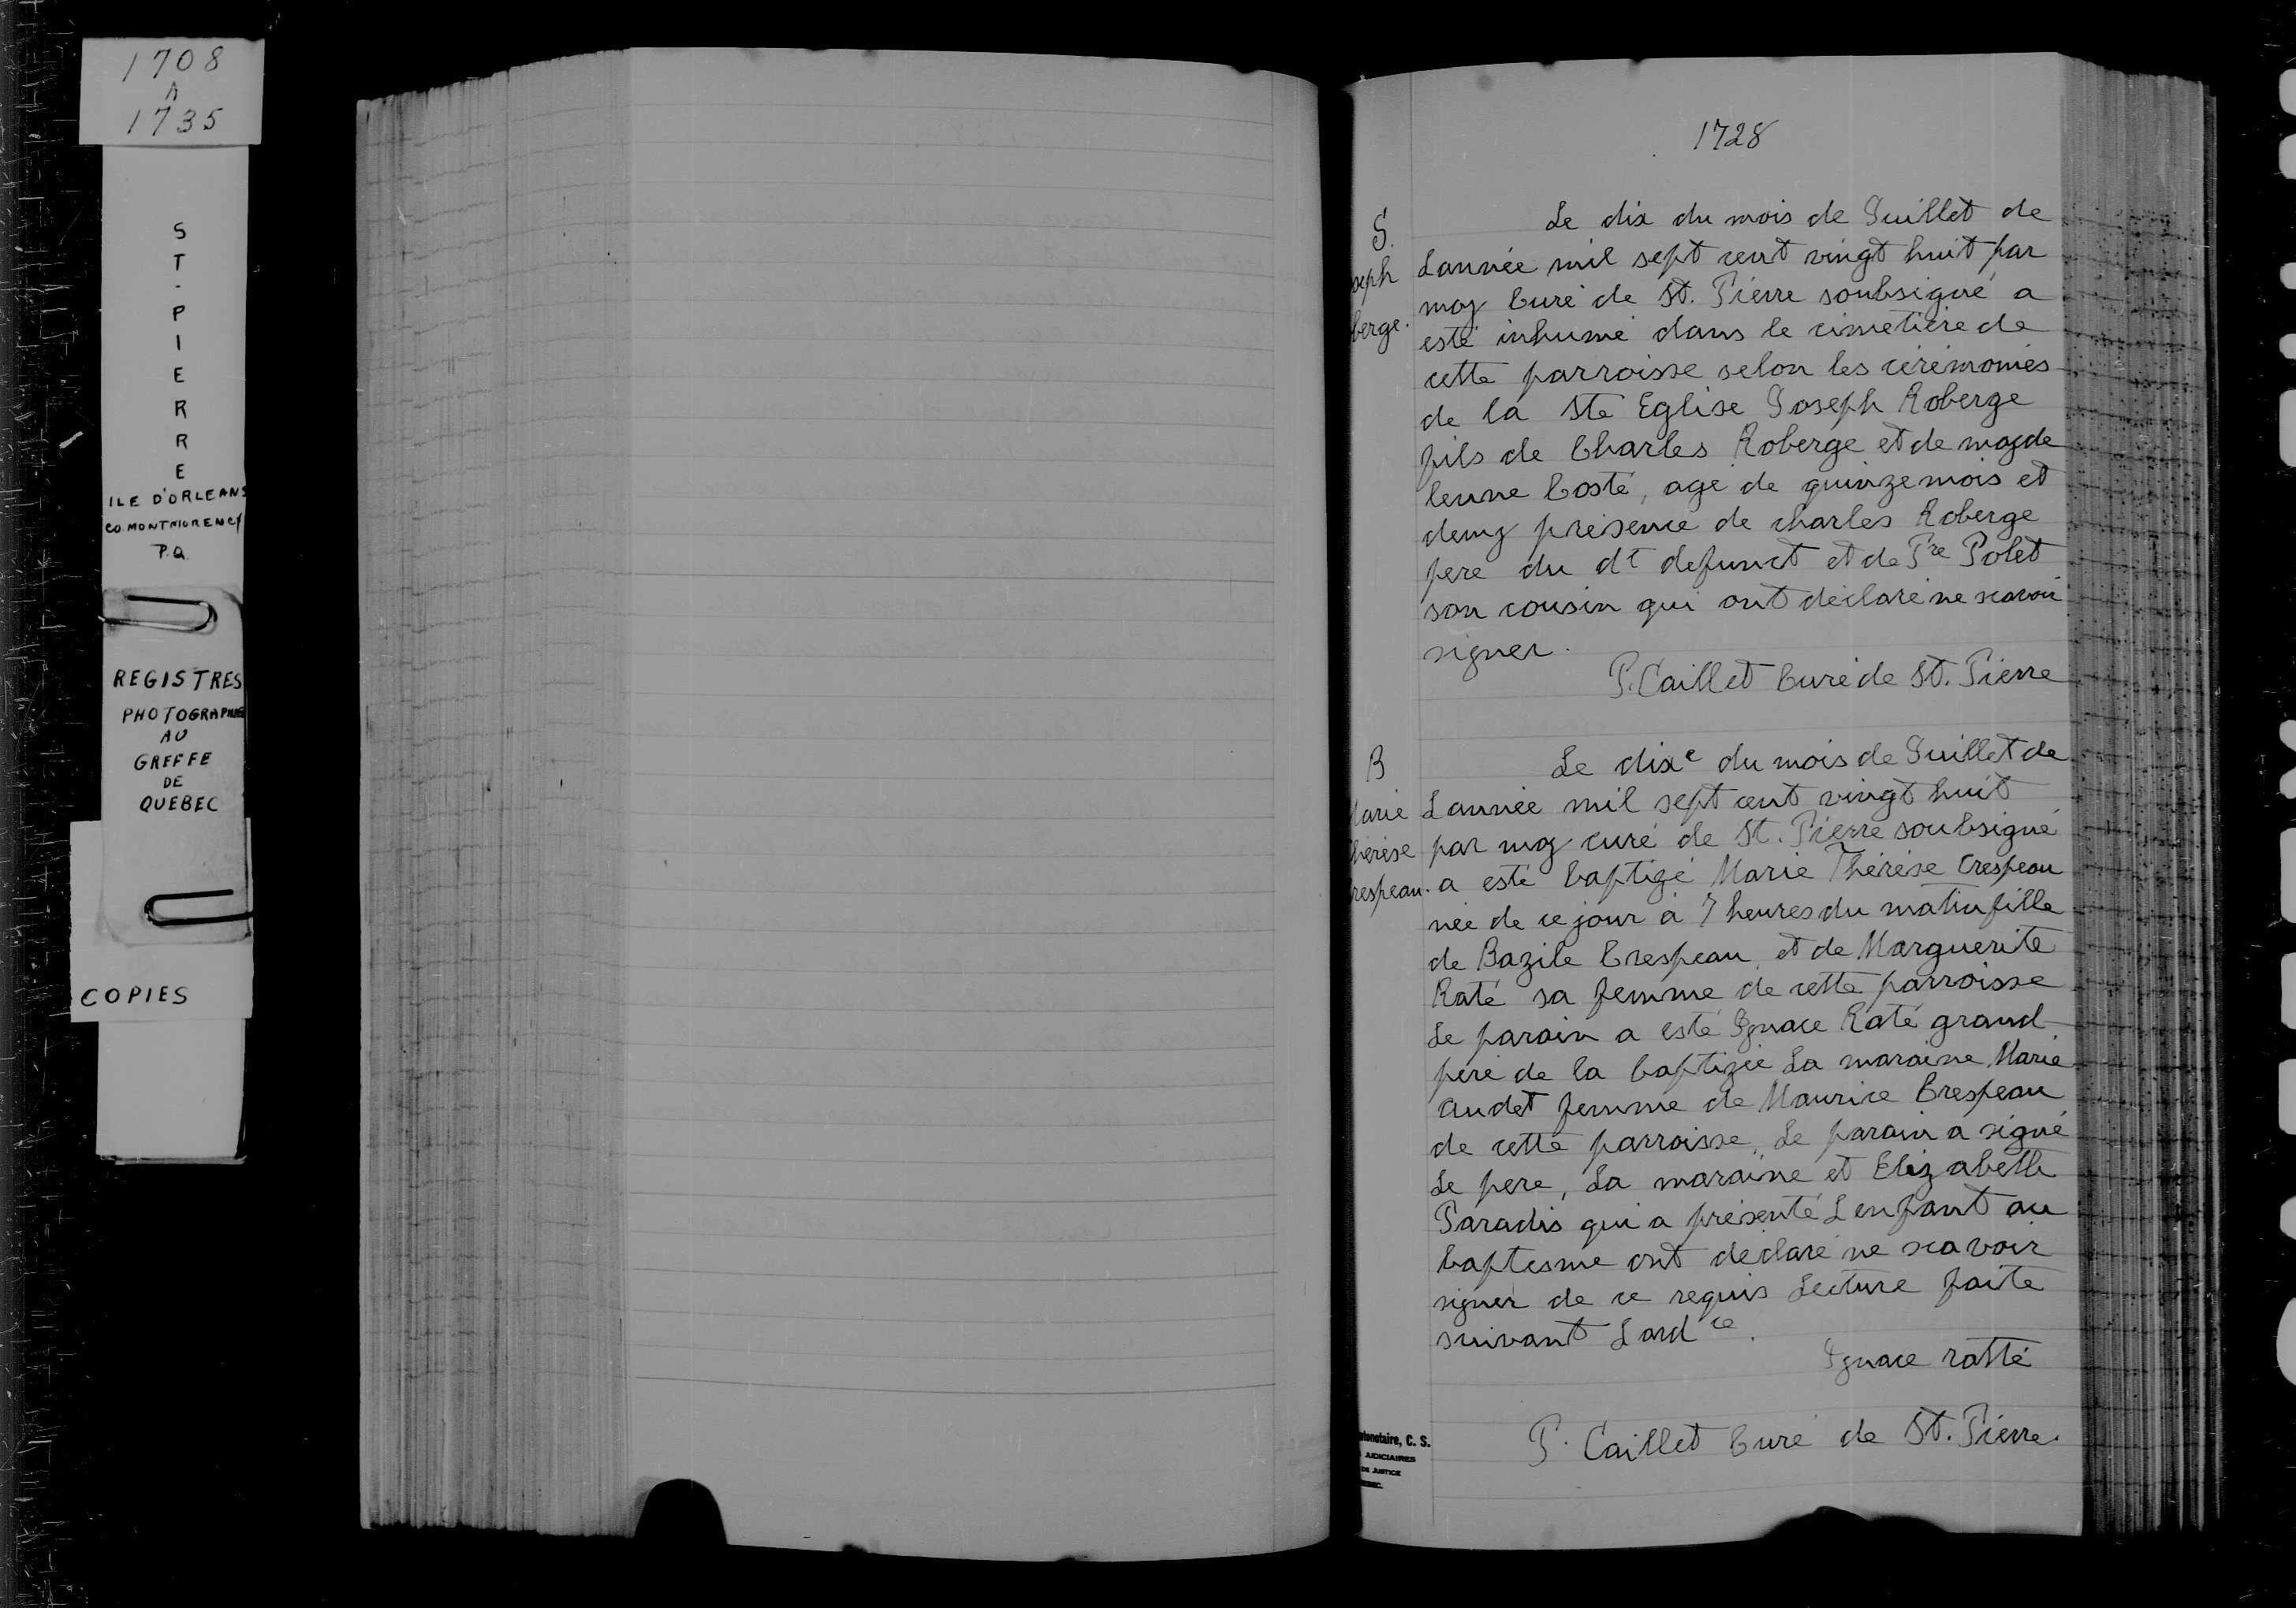 1708
A
1735
ST-PIERRE
ILE D'ORLEANS
CO. MONTMORENCY
P.Q.
REGISTRES
PHOTOGRAPHIES
AU
GREFFE
DE
QUEBEC
COPIES
1728
S.
seph
berge.
Le dix du mois de Juillet de
Lannée mil sept cent vingt huit par
moy Curé de St. Pierre soubsigné a
esté inhumé dans le cimetiere de
cette parroisse selon les cérémonies
de la Ste Eglise Joseph Roberge
fils de Charles Roberge et de magde
lenne Costé, agé de quinze mois et
demy présence de charles Roberge
pere du dt defunct et de Pre Polet
son cousin qui ont déclaré ne scavoir
signer.
P. Caillet Curé de St. Pierre
B
Marie
hérèse
respeau.
Le dixe du mois de Juillet de
Lannée mil sept cent vingt huit
par moy curé de St. Pierre soubsigné
a esté baptizé Marie Thérèse Crespeau
née de ce jour à 7 heures du matin fille
de Bazile Crespeau et de Marguerite
Raté sa femme de cette parroisse
Le parain a esté Ignace Raté grand
pere de la baptizée La maraine Marie
Audet femme de Maurice Crespeau
de cette parroisse, Le parain a signé
Le pere, La maraine et Elizabeth
Paradis qui a présenté Lenfant au
baptesme ont déclaré ne scavoir
signer de ce requis Lecture faite
suivant Lordce.
Ignace ratté
P. Caillet Curé de St. Pierre.
otonotaire, C. S.
JUDICIAIRES
DE JUSTICE